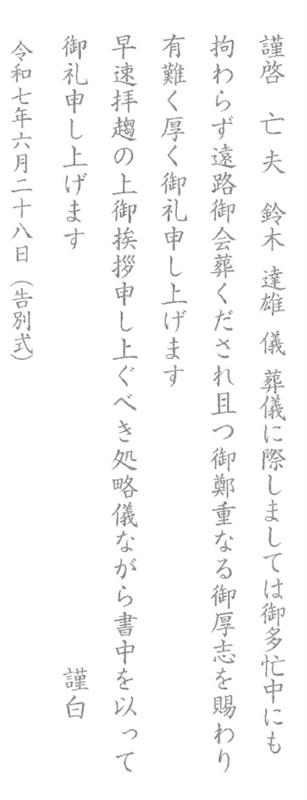 謹啓　亡夫　鈴木　達雄　儀　葬儀に際しましては御多忙中にも
拘わらず遠路御会葬くだされ且つ御鄭重なる御厚志を賜わり
有難く厚く御礼申し上げます
早速拝趨の上御挨拶申し上ぐべき処略儀ながら書中を以って
御礼申し上げます　謹白
令和七年六月二十八日（告別式）